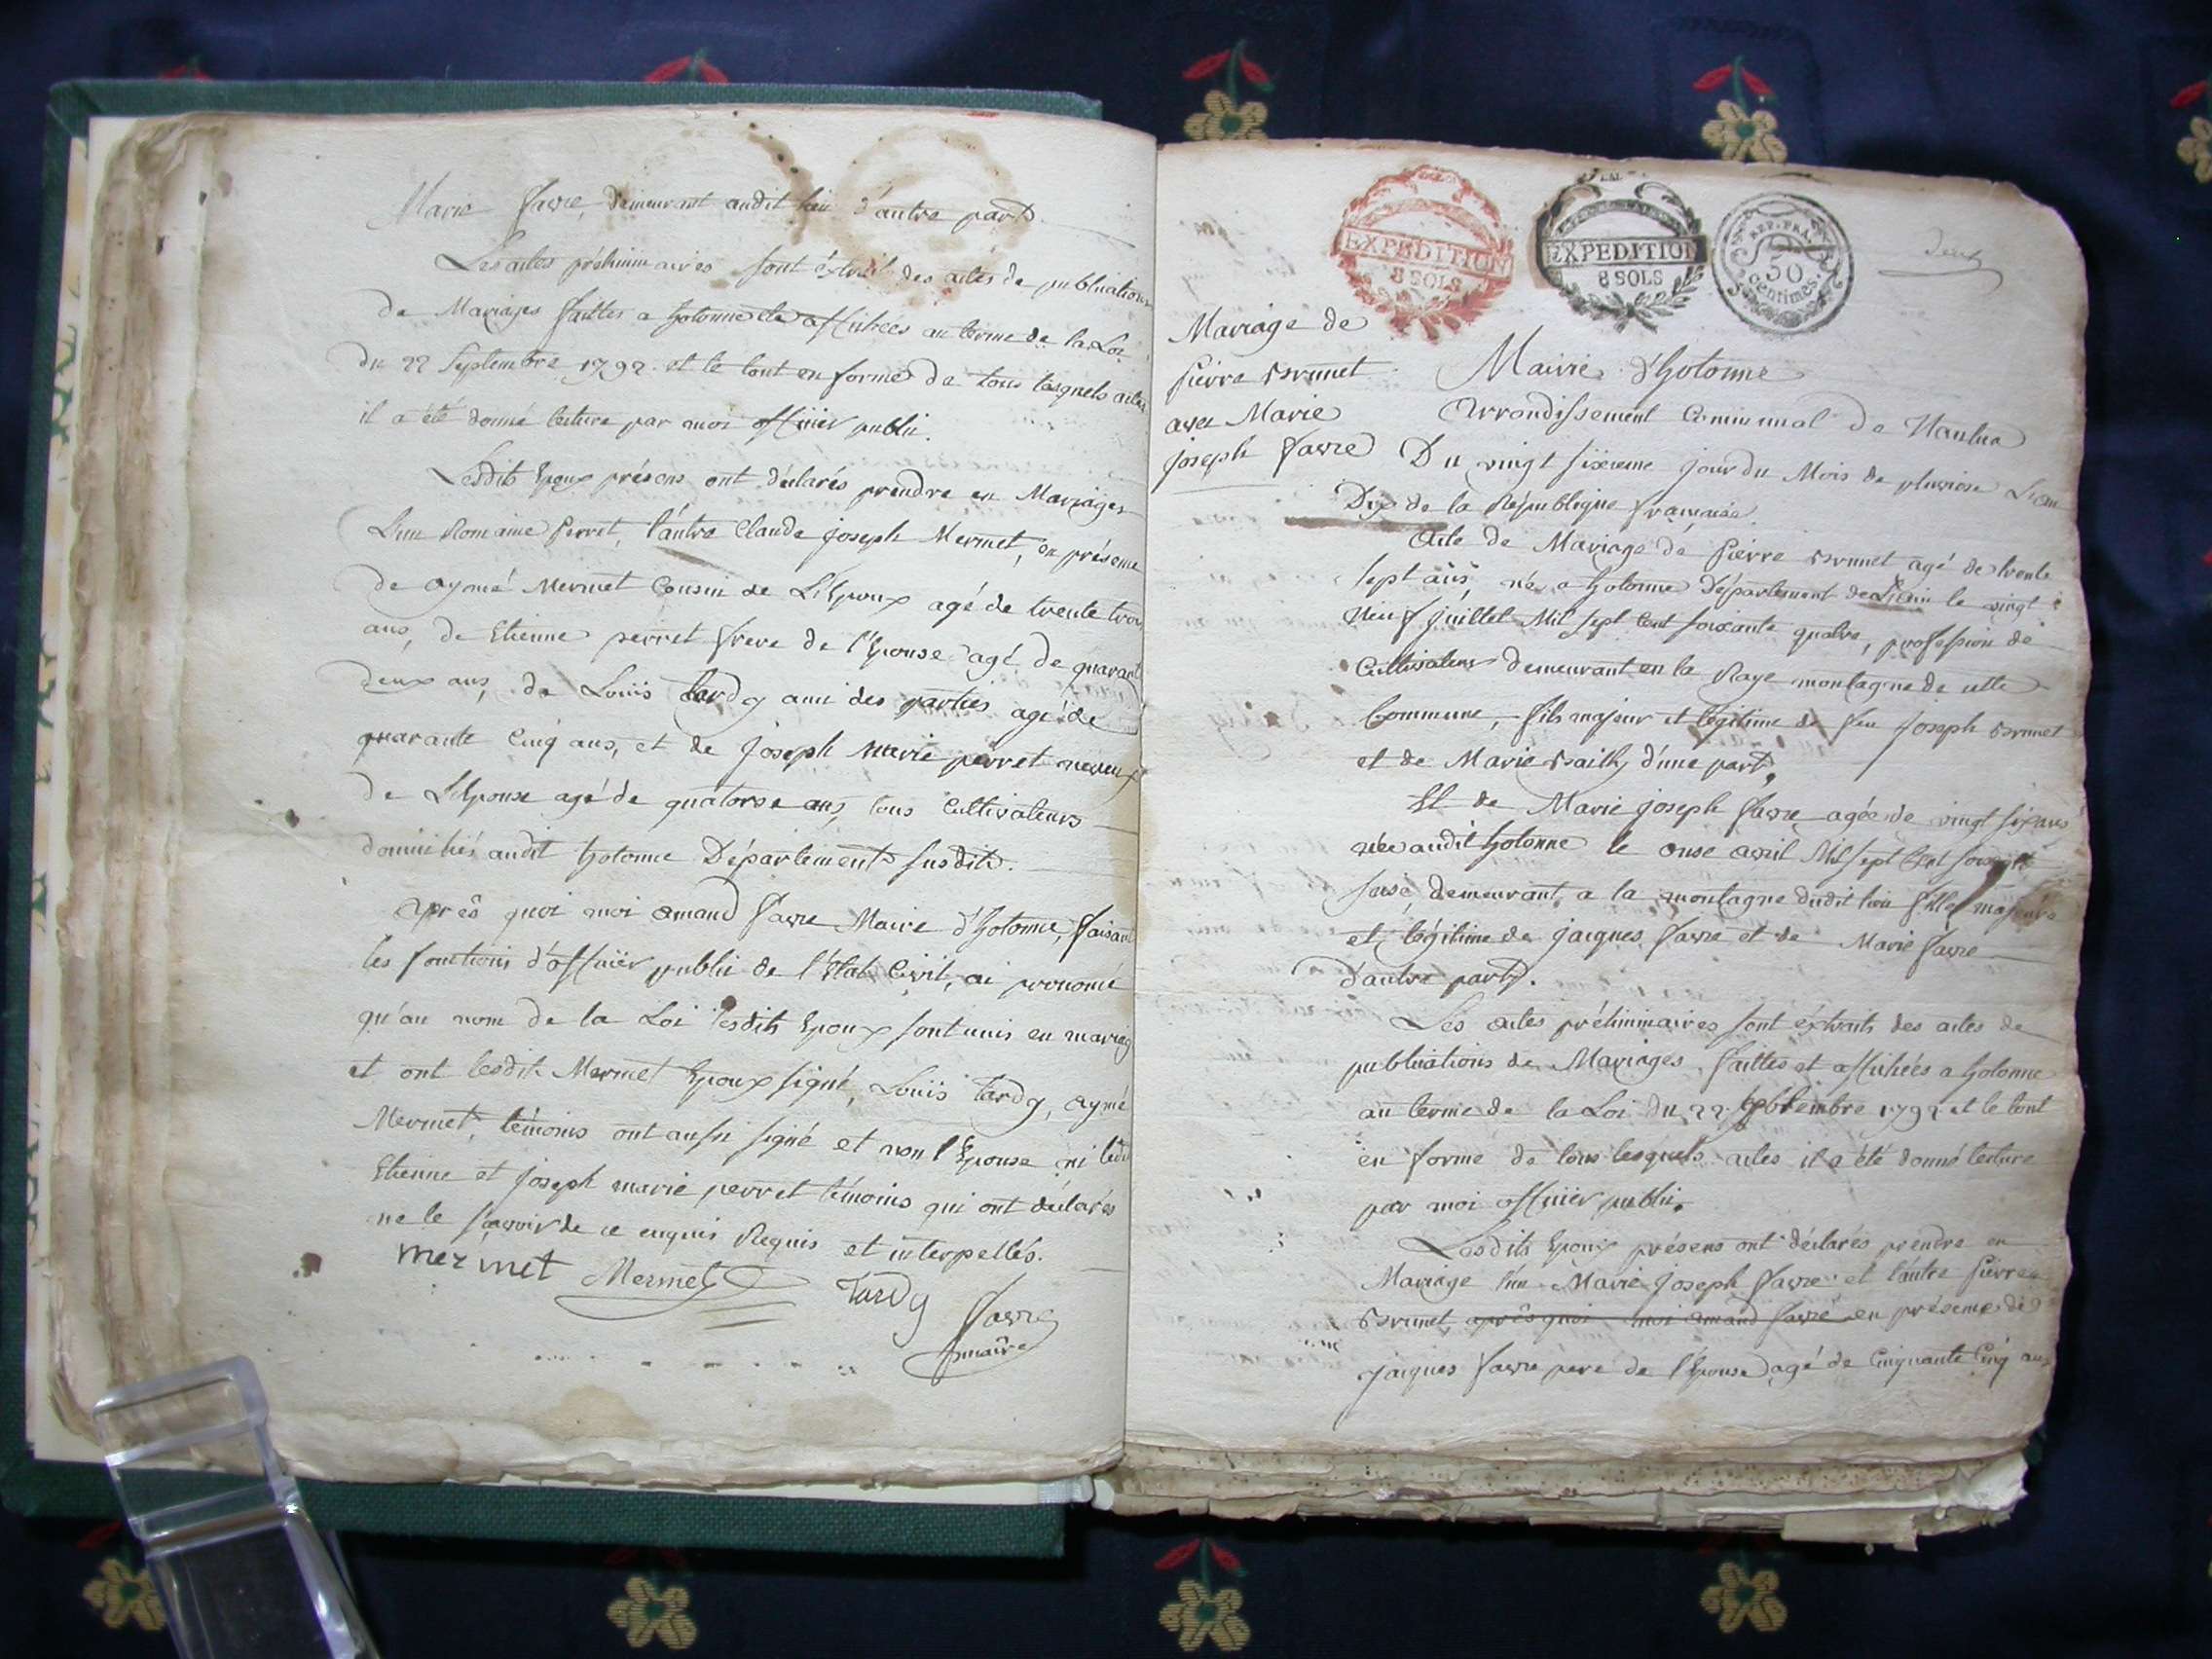 Marie favre, demeurant audit lieu d'autre part.
Les actes préliminaires sont éxtrait des actes de publications
de Mariages faittes a hotonne et affichées au terme de la Loi
du 22 Septembre 1792. et le tout en forme de tous lesquels actes
il a été donné lecture par moi officiër public.
Lesdits Epoux présens ont déclarés prendre en Mariages
L'un Romaine Perret, l'autre Claude joseph Mermet, en présence
de aymé Mermet Cousin de L'Epoux agé de trente trois
ans, de Etienne perret frere de l'Epouse agé de quarant
deux ans, de Louis tardy ami des parties agé de
quarante Cinq ans, et de joseph marie perret neveux
de L'Epouse agé de quatorse ans, tous Cultivateurs
domiciliés audit hotonne Département susdit.
Après quoi moi amand favre Maire d'hotonne, faisant
les fonctions d'officiër public de l'Etat Civil, ai prononcé
qu'au nom de la Loi lesdits Epoux sont unis en mariag
et ont lesdit Mermet Epoux signé, Louis tardy, aymé
Mermet, témoins ont aussi signé et non l'Epouse ni lesd
Etienne et joseph marie perret témoins qui ont déclarés
ne le sçavoir de ce enquis Requis et interpellés.
mermet Mermet tardy favre
maire
EXPEDITION
8 SOLS
EXPEDITION
8 SOLS
REP. FRA.
50
Centimes.
Mariage de
pierre Brunet
avec Marie
joseph favre
Mairie d'hotonne
Arrondissement Communal de Nantua
Du vingt sixieme jour du Mois de pluviose L'an
Dix de la République française.
Acte de Mariage de pierre Brunet agé de trente
sept ans, né a hotonne Département de L'ain le vingt
neuf juillet Mil sept Cent soixante quatre, profession de
Cultivateur demeurant en la Raye montagne de cette
Commune, fils majeur et légitime de feu joseph Brunet
et de Marie Bailly d'une part,
Et de Marie joseph favre agée de vingt six ans
née audit hotonne le onse avril Mil sept Cent soixante
sense, demeurant, a la montagne dudit lieu fille majeure
et légitime de jacques favre et de Marie favre
d'autre part.
Les actes préliminaires sont éxtraits des actes de
publications de Mariages, faittes et affichées a hotonne
au terme de la Loi du 22 septembre 1792 et le tout
en forme de tous lesquels actes il a été donné lecture
par moi officiër public.
Lesdits Epoux présens ont déclarés prendre en
Mariage l'un Marie joseph favre et l'autre pierre
Brunet, après quoi moi amand favre en présence de
jacques favre pere de l'Epouse agé de Cinquante Cinq ans